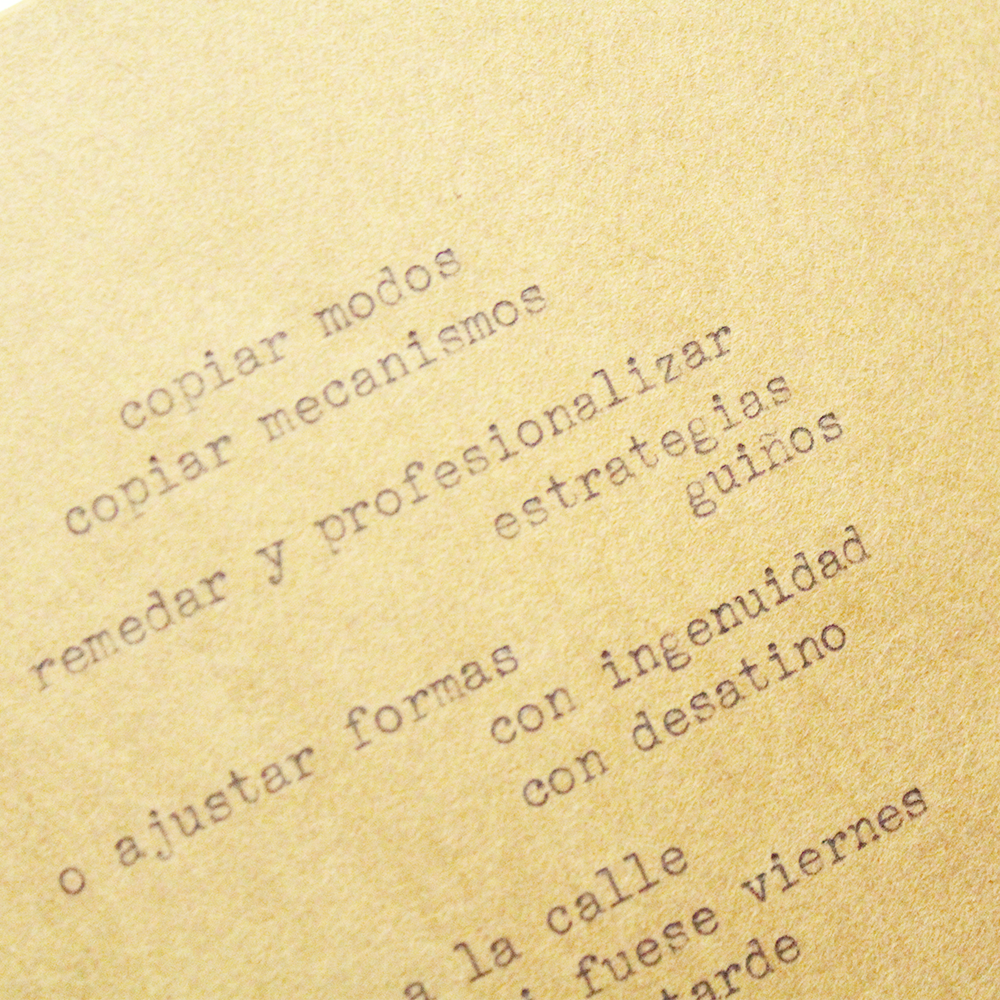 copiar modos
copiar mecanismos
remedar y profesionalizar
estrategias
guiños
o ajustar formas
con ingenuidad
con desatino
a la calle
fuese viernes
tarde